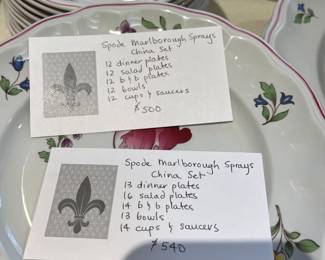 Spode Marlborough Sprays
China Set
12 dinner plates
12 salad plates
12 b & b plates
12 bowls
12 cups & saucers
$500
Spode Marlborough Sprays
China Set
13 dinner plates
16 salad plates
14 b & b plates
13 bowls
14 cups & saucers
$540